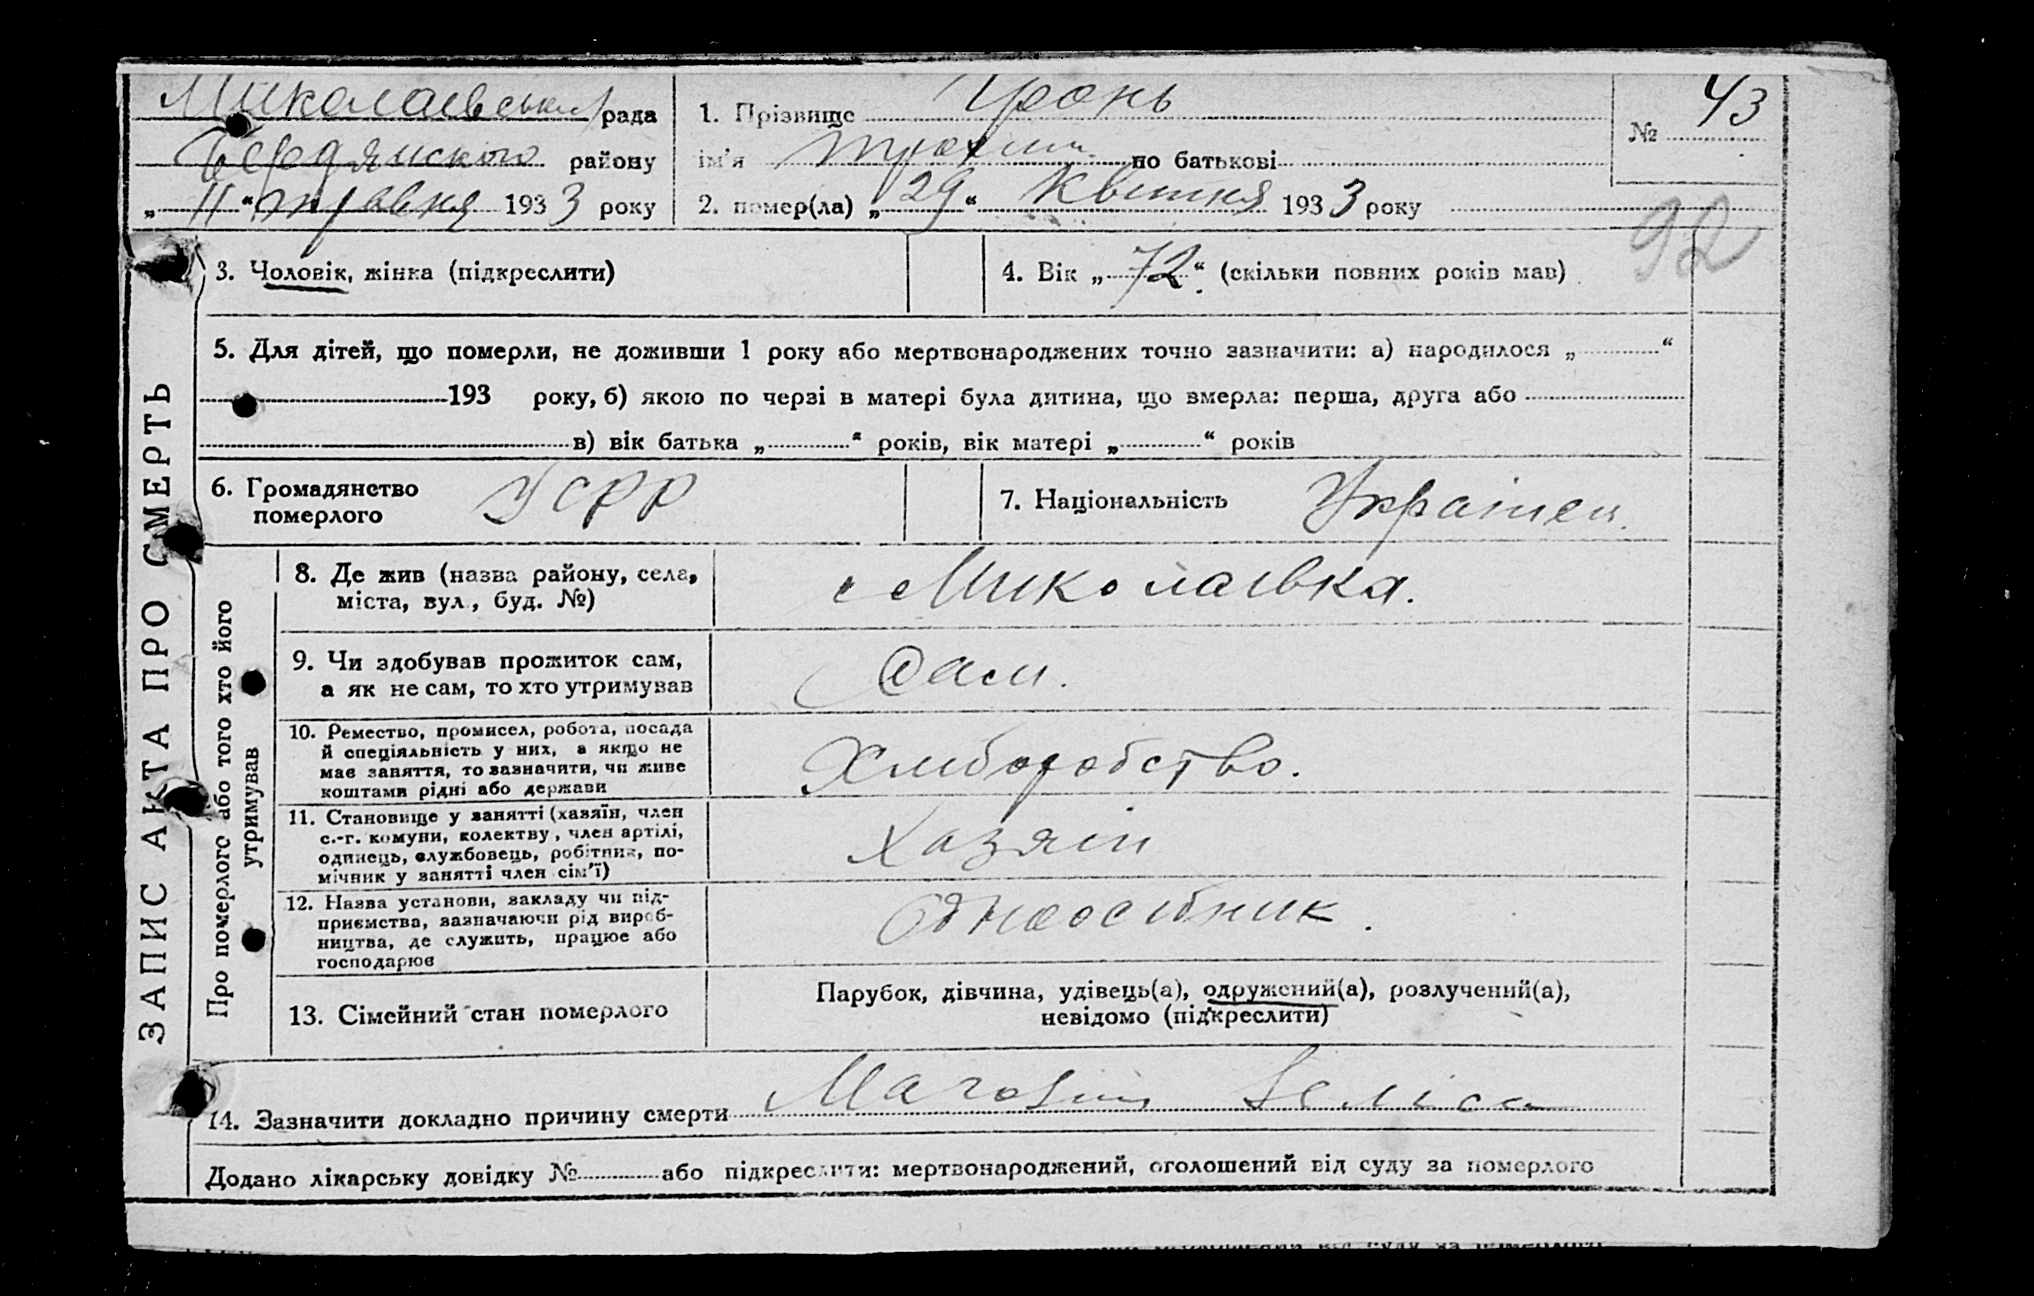 Миколаївська рада
Бердянского району
„ 11 “ травня 1933 року
1. Прізвище Гронь
ім'я Трохим по батькові
2. помер(ла) „ 29 “ Квітня 1933 року
№ 43
92
3. Чоловік, жінка (підкреслити)
4. Вік „ 72 “ (скільки повних років мав)
5. Для дітей, що померли, не доживши 1 року або мертвонароджених точно зазначити: а) народилося „ “
193 року, б) якою по черзі в матері була дитина, що вмерла: перша, друга або
в) вік батька „ “ років, вік матері „ “ років
6. Громадянство
померлого
УСРР
7. Національність Українец.
ЗАПИС АКТА ПРО СМЕРТЬ
Про померлого або того хто його
утримував
8. Де жив (назва району, села,
міста, вул., буд. №)
с Миколаівка.
9. Чи здобував прожиток сам,
а як не сам, то хто утримував
Сам.
10. Ремество, промисел, робота, посада
й спеціяльність у них, а якщо не
має заняття, то зазначити, чи живе
коштами рідні або держави
Хліборобство.
11. Становище у занятті (хазяїн, член
с.-г. комуни, колектву, член артілі,
одинець, службовець, робітник, по-
мічник у занятті член сім'ї)
Хазяін
12. Назва установи, закладу чи під-
приємства, зазначаючи рід вироб-
ництва, де служить, працює або
господарює
Одноосібник.
13. Сімейний стан померлого
Парубок, дівчина, удівець(а), одружений(а), розлучений(а),
невідомо (підкреслити)
14. Зазначити докладно причину смерти
Додано лікарську довідку № або підкреслити: мертвонароджений, оголошений від суду за померлого